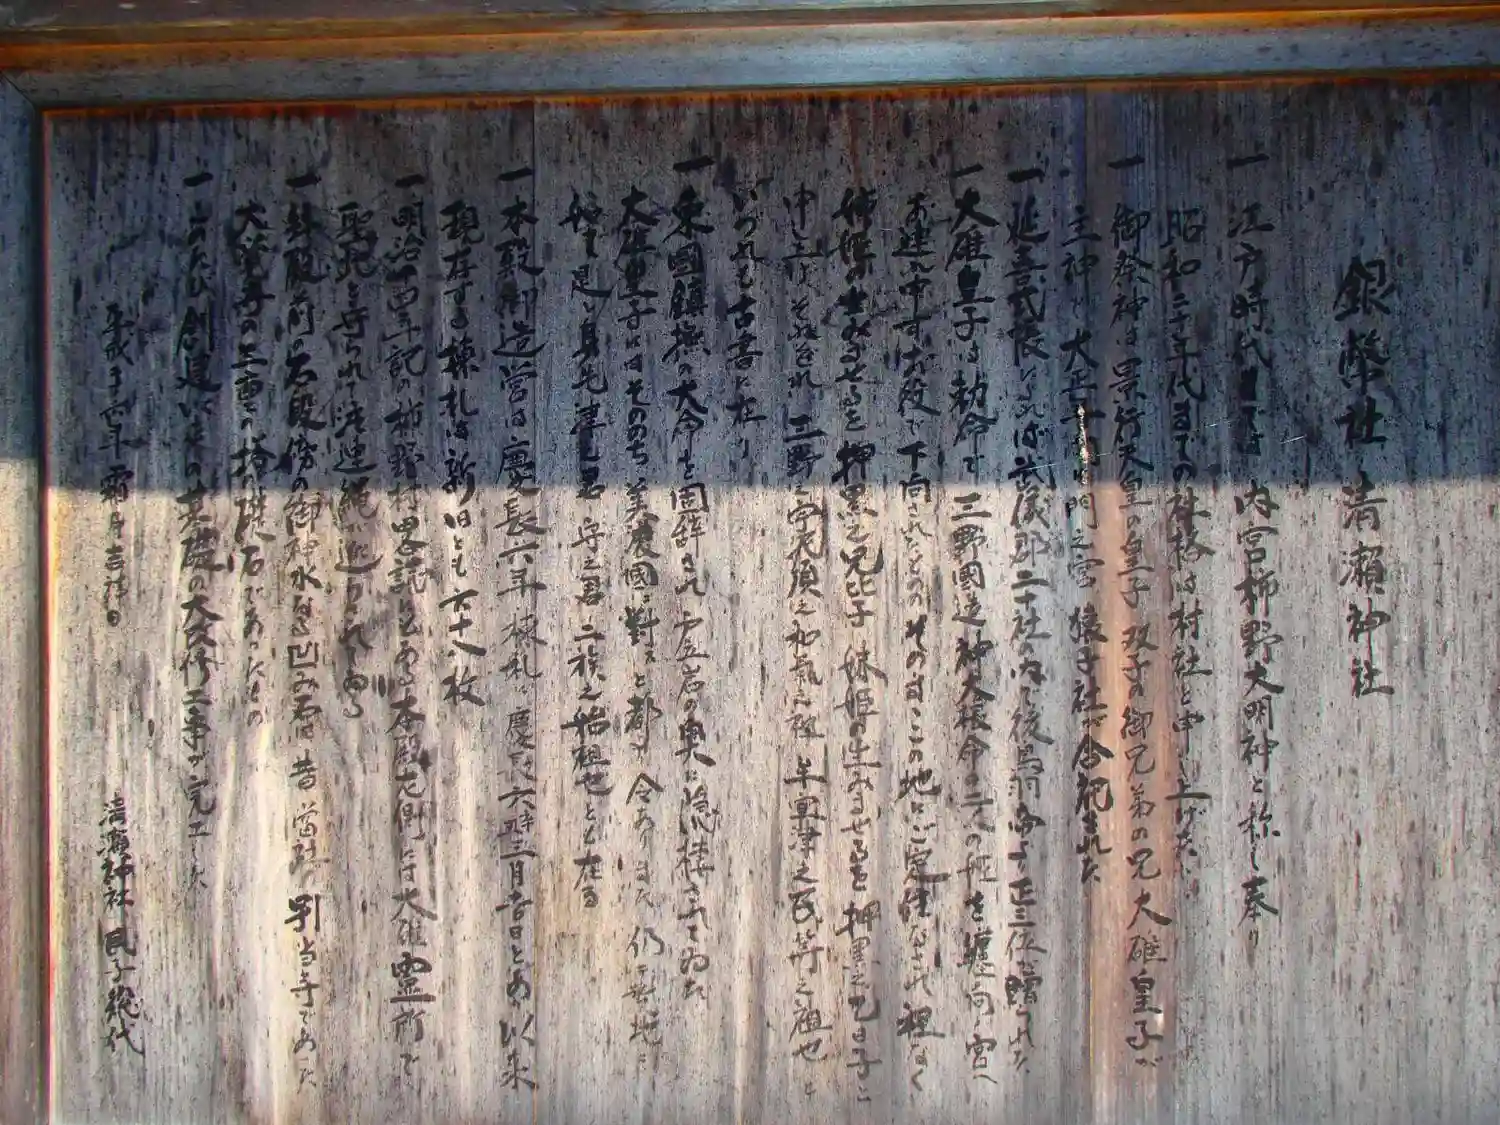 銀幣社 清瀬神社
一 江戸時代までは 内宮柿野大明神と称し奉り
昭和二十年代までの社格は村社と申し上げた
一 御祭神は景行天皇の皇子 双子の御兄弟の兄 大碓皇子が
主神で 大正年間 之宮 猿子社が合祀された
一 延喜式長 によれば武儀郡二十社の内で後鳥羽 より正三位を贈られた
一 大碓皇子は勅命で 三野國造神大根命の二人の姫を纏向ノ宮へ
お連れ申すお役で下向されたものの そのままこの地にご定住なされ 程なく
姉姫の生みませるを 押黒之兄比子 妹姫の生みませるを 押黒之弟日子と
申し それぞれ 三野之宇泥須之和氣之祖 牟冝津之氏等之祖也と
いづれも古書に在り
一 東國鎮撫の大命を固辞され 岩の奥に隠棲されてゐた
大碓皇子にはそののち 美濃國に封ずと都より 令ありました 仍 此地に
始て是 身毛津之君 守之君 二族之始祖也とも在る
一 本殿御造営は 慶長六年 棟札に 慶長六 三月吉日とあり 以来
現存する棟札は 新旧とも六十八枚
一 明治十四年記の 柿野村 誌 にもある 本殿左側には 大碓霊所で
聖地と守られて 注連縄が 廻りされてゐる
一 拝殿前の石段傍の御神水なる 凹み石は 昔 当社の 別当寺であった
大 寺の三重の塔の礎石であったもの
一 このたび 創建以来の基礎の大改修工事が完工した
平成十四年 霜月吉祥日
清瀬神社 氏子総代